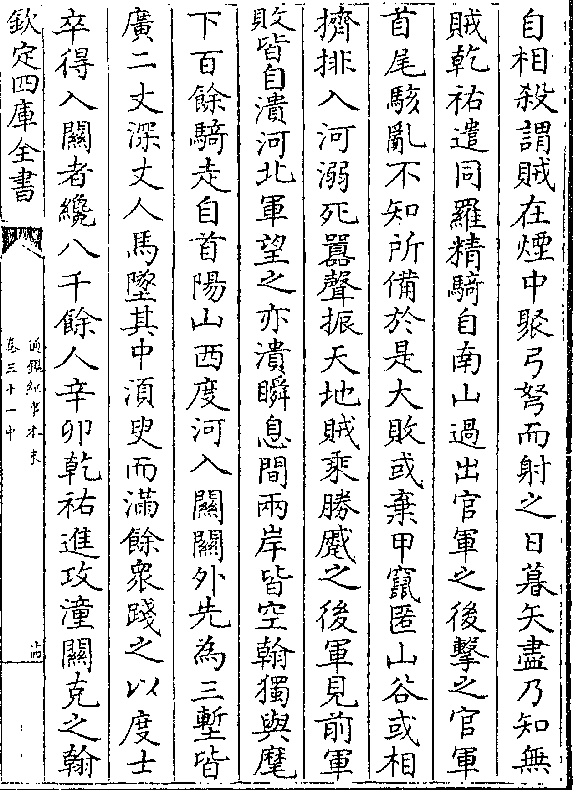 自相殺謂賊在煙中聚弓弩而射之日暮矢盡乃知無
賊乾祐遣同羅精騎自南山過出官軍之後擊之官軍
首尾駭亂不知所備於是大敗或棄甲竄匿山谷或相
擠排入河溺死囂聲振天地賊乘勝蹙之後軍見前軍
敗皆自潰河北軍望之亦潰瞬息間兩岸皆空翰獨與麾
下百餘騎走自首陽山西度河入關關外先為三塹皆
廣二丈深丈人馬墜其中須臾而滿餘衆踐之以度士
卒得入關者纔八千餘人辛卯乾祐進攻潼關克之翰
欽定四庫全書
通鑑紀事本末
卷三十一中